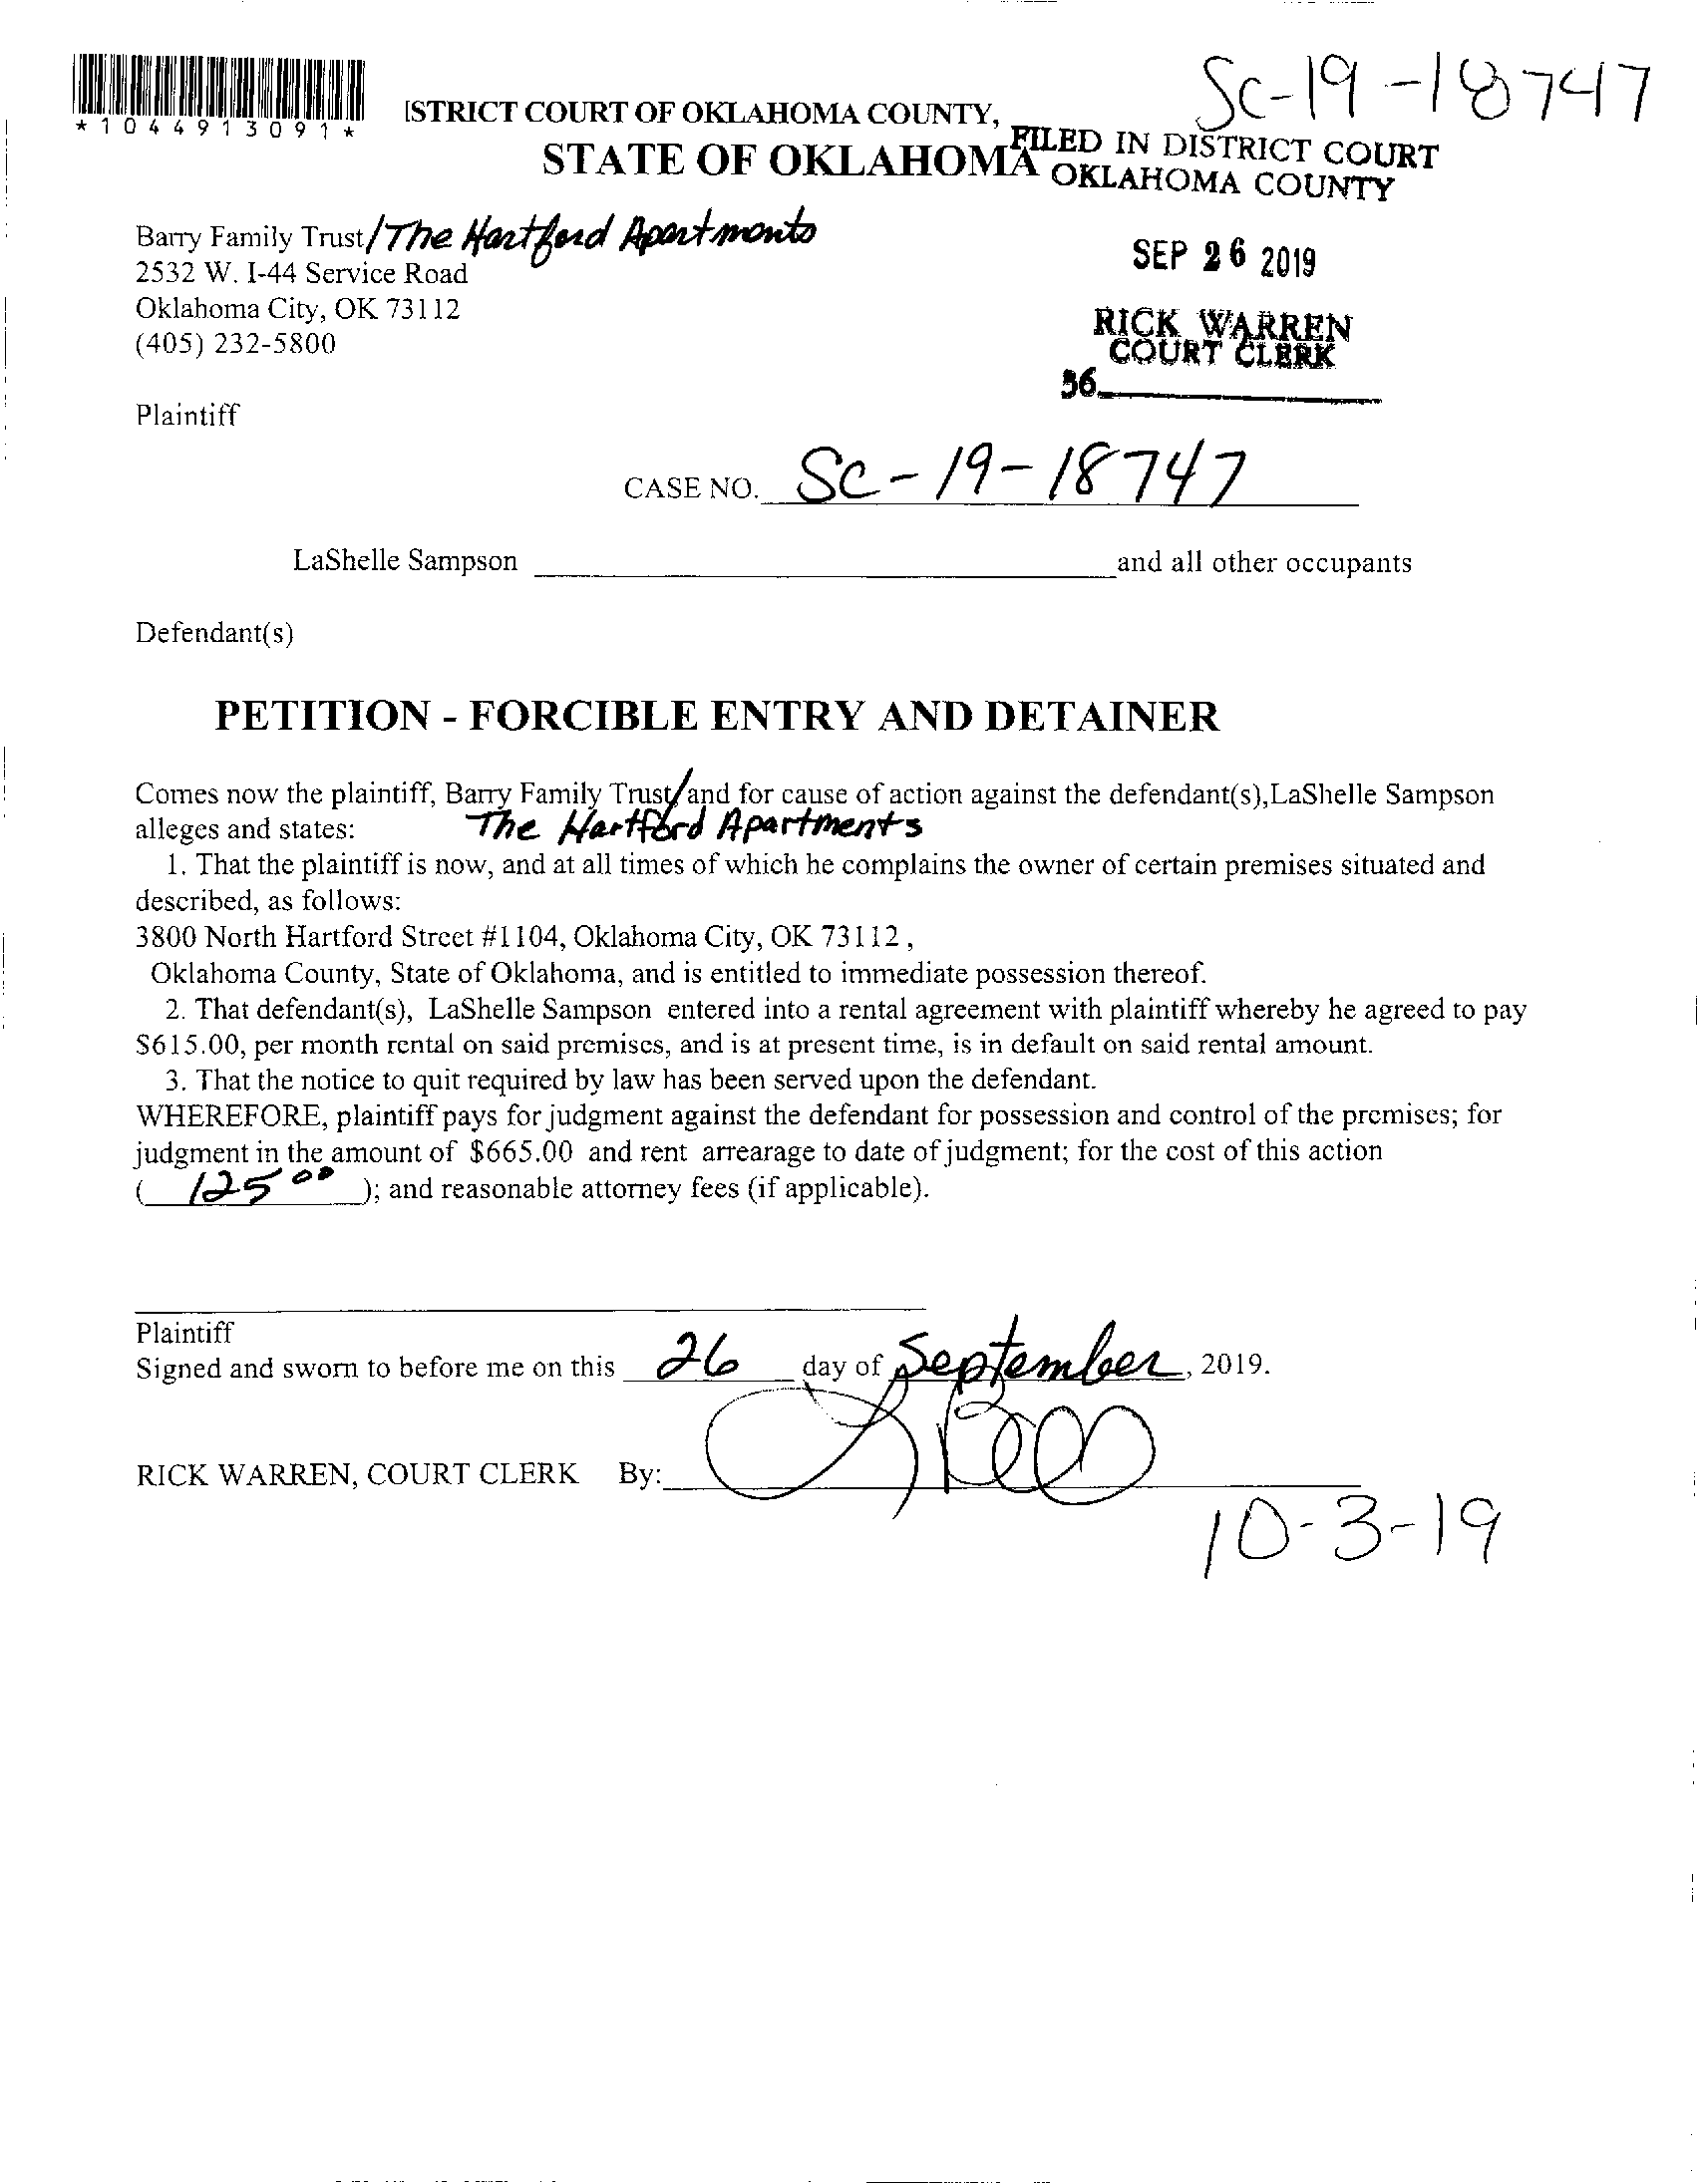 SC-19-18747
*1044913091*
ISTRICT COURT OF OKLAHOMA COUNTY,
STATE OF OKLAHOMA
FILED IN DISTRICT COURT
OKLAHOMA COUNTY
Barry Family Trust/The Hartford Apartments
2532 W. I-44 Service Road
Oklahoma City, OK 73112
(405) 232-5800
SEP 26 2019
RICK WARREN
COURT CLERK
36
Plaintiff
CASE NO. SC-19-18747
LaShelle Sampson and all other occupants
Defendant(s)
PETITION - FORCIBLE ENTRY AND DETAINER
Comes now the plaintiff, Barry Family Trust/and for cause of action against the defendant(s),LaShelle Sampson
alleges and states: The Hartford Apartments
1. That the plaintiff is now, and at all times of which he complains the owner of certain premises situated and
described, as follows:
3800 North Hartford Street #1104, Oklahoma City, OK 73112 ,
Oklahoma County, State of Oklahoma, and is entitled to immediate possession thereof.
2. That defendant(s), LaShelle Sampson entered into a rental agreement with plaintiff whereby he agreed to pay
$615.00, per month rental on said premises, and is at present time, is in default on said rental amount.
3. That the notice to quit required by law has been served upon the defendant.
WHEREFORE, plaintiff pays for judgment against the defendant for possession and control of the premises; for
judgment in the amount of $665.00 and rent arrearage to date of judgment; for the cost of this action
( 125 00 ); and reasonable attorney fees (if applicable).
Plaintiff
Signed and sworn to before me on this 26 day of September, 2019.
RICK WARREN, COURT CLERK By:
10-3-19